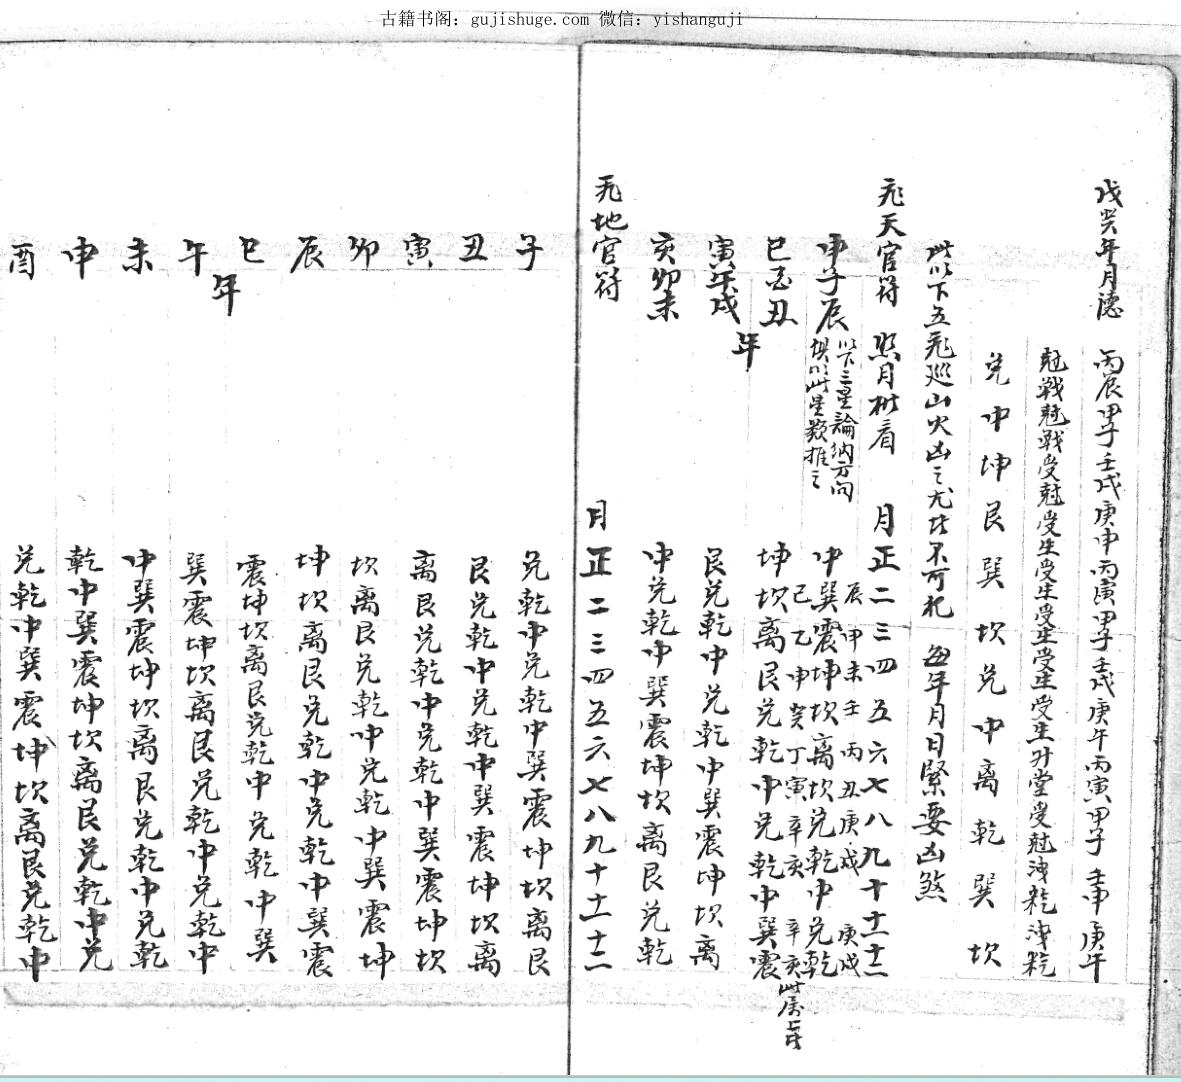 古籍书阁：gujishuge.com 微信：yishanguji
戊癸年月德 丙辰甲子壬戌庚申丙寅甲子壬戌庚午丙寅甲子壬申庚午
兑中坤艮巽坎兑中离乾巽坎
此以下五飛巡山火凶之尤甚不可犯 每年月日緊要凶煞
飛天官符 照月游看 月正二三四五六七八九十十一十二
申子辰
以下三星論納方向
中巽震坤坎离坎兑乾中兑乾
巳酉丑 坤坎离艮兑乾中兑乾中巽震
年
寅午戌 艮兑乾中兑乾中巽震坤坎离
亥卯未 中兑乾中巽震坤坎离艮兑乾
飛地官符 月正二三四五六七八九十十一十二
子 兑乾中兑乾中巽震坤坎离艮
丑 艮兑乾中兑乾中巽震坤坎离
寅 离艮兑乾中兑乾中巽震坤坎
卯 坎离艮兑乾中兑乾中巽震坤
辰 坤坎离艮兑乾中兑乾中巽震
巳 震坤坎离艮兑乾中兑乾中巽
年
午 巽震坤坎离艮兑乾中兑乾中
未 中巽震坤坎离艮兑乾中兑乾
申 乾中巽震坤坎离艮兑乾中兑
酉 兑乾中巽震坤坎离艮兑乾中